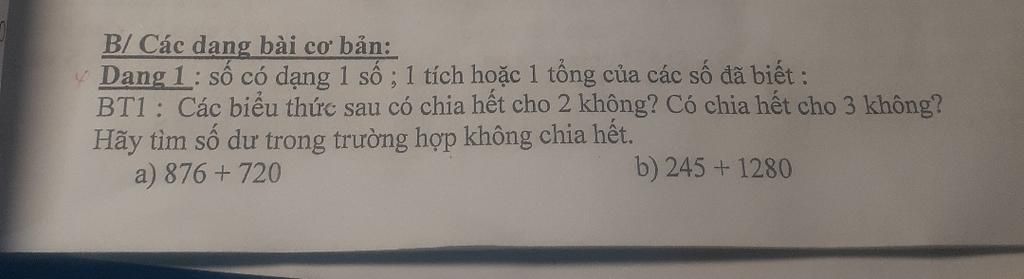 B/ Các dạng bài cơ bản:
Dạng 1 : số có dạng 1 số ; 1 tích hoặc 1 tổng của các số đã biết :
BT1 : Các biểu thức sau có chia hết cho 2 không? Có chia hết cho 3 không?
Hãy tìm số dư trong trường hợp không chia hết.
a) 876 + 720 b) 245 + 1280